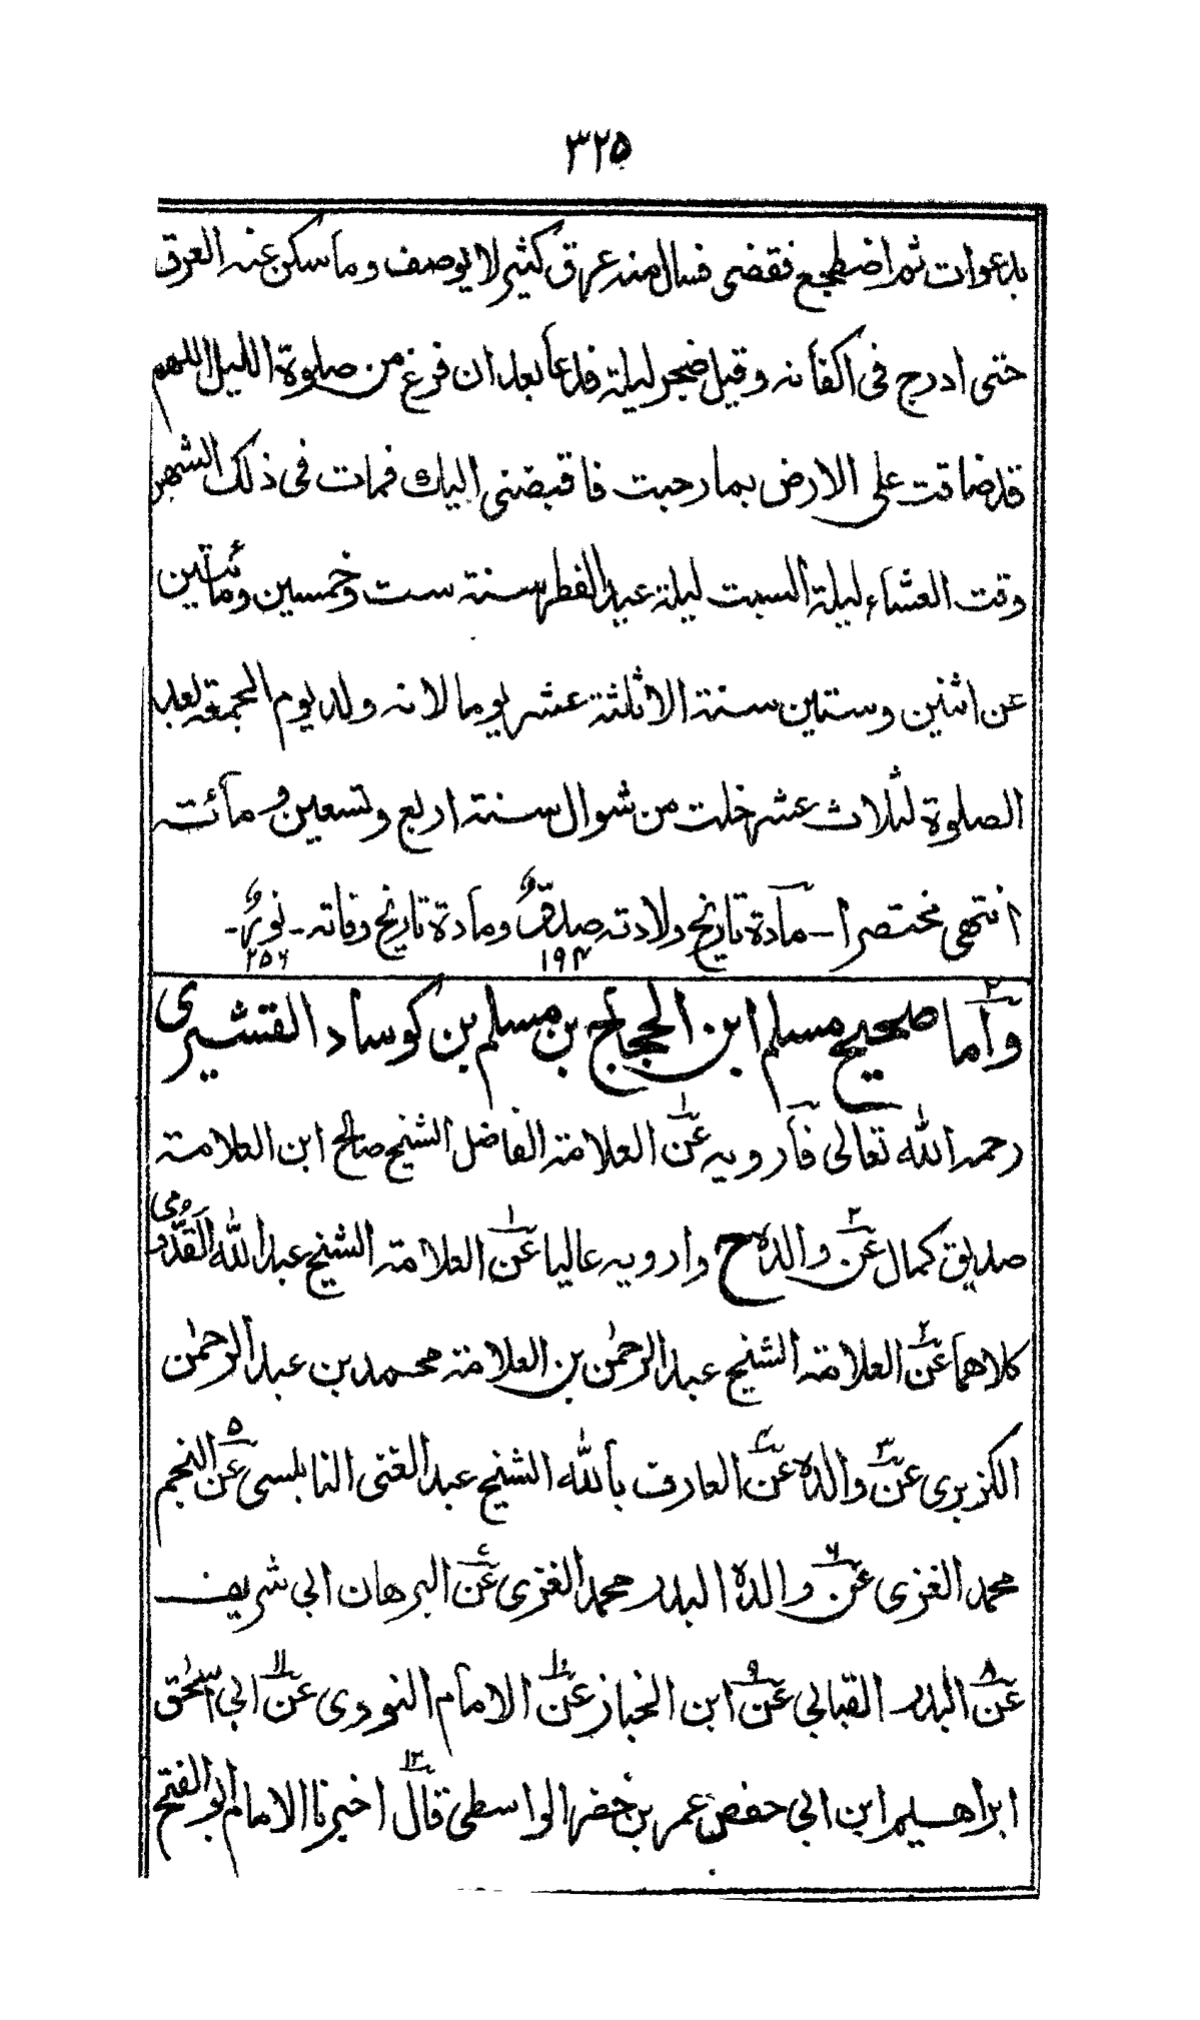 ٣٢٥
بدعوات ثم اضطجع فقضى فسال منه عرق كثير لا يوصف وما سكن عنه العرق
حتى ادرج فى اكفانه وقيل ضجر ليلة فدعا بعد ان فرغ من صلوة الليل اللهم
قد ضاقت على الارض بما رحبت فاقبضنى اليك فمات فى ذلك الشهر
وقت العشاء ليلة السبت ليلة عيد الفطر سنة ست وخمسين ومائتين
عن اثنين وستين سنة الا ثلثة عشر يوما لانه ولد يوم الجمعة بعد
الصلوة لثلاث عشر خلت من شوال سنة اربع وتسعين ومائة
انتهى مختصرا - مادة تاريخ ولادته صدقٌ ومادة تاريخ وفاته - نورٌ -
١٩٤ ٢٥٦
وأما صحيح مسلم ابن الحجاج بن مسلم بن كوساد القشيرى
رحمه الله تعالى فأرويه عن ١ العلامة الفاضل الشيخ صالح ابن العلامة
صديق كمال عن ٢ والده ح وارويه عاليا عن ١ العلامة الشيخ عبد الله القدّومى
كلاهما عن ٢ العلامة الشيخ عبد الرحمٰن بن العلامة محمد بن عبد الرحمٰن
الكزبرى عن ٣ والده عن ٤ العارف بالله الشيخ عبد الغنى النابلسى عن ٥ النجم
محمد الغزى عن ٦ والده البدر محمد الغزى عن ٧ البرهان ابى شريف
عن ٨ البدر القبابى عن ٩ ابن الخباز عن ١٠ الامام النووى عن ١١ ابى اسحٰق
ابراهيم ابن ابى حفص عمر بن خضر الواسطى قال ١٢ اخبرنا الامام ابو الفتح